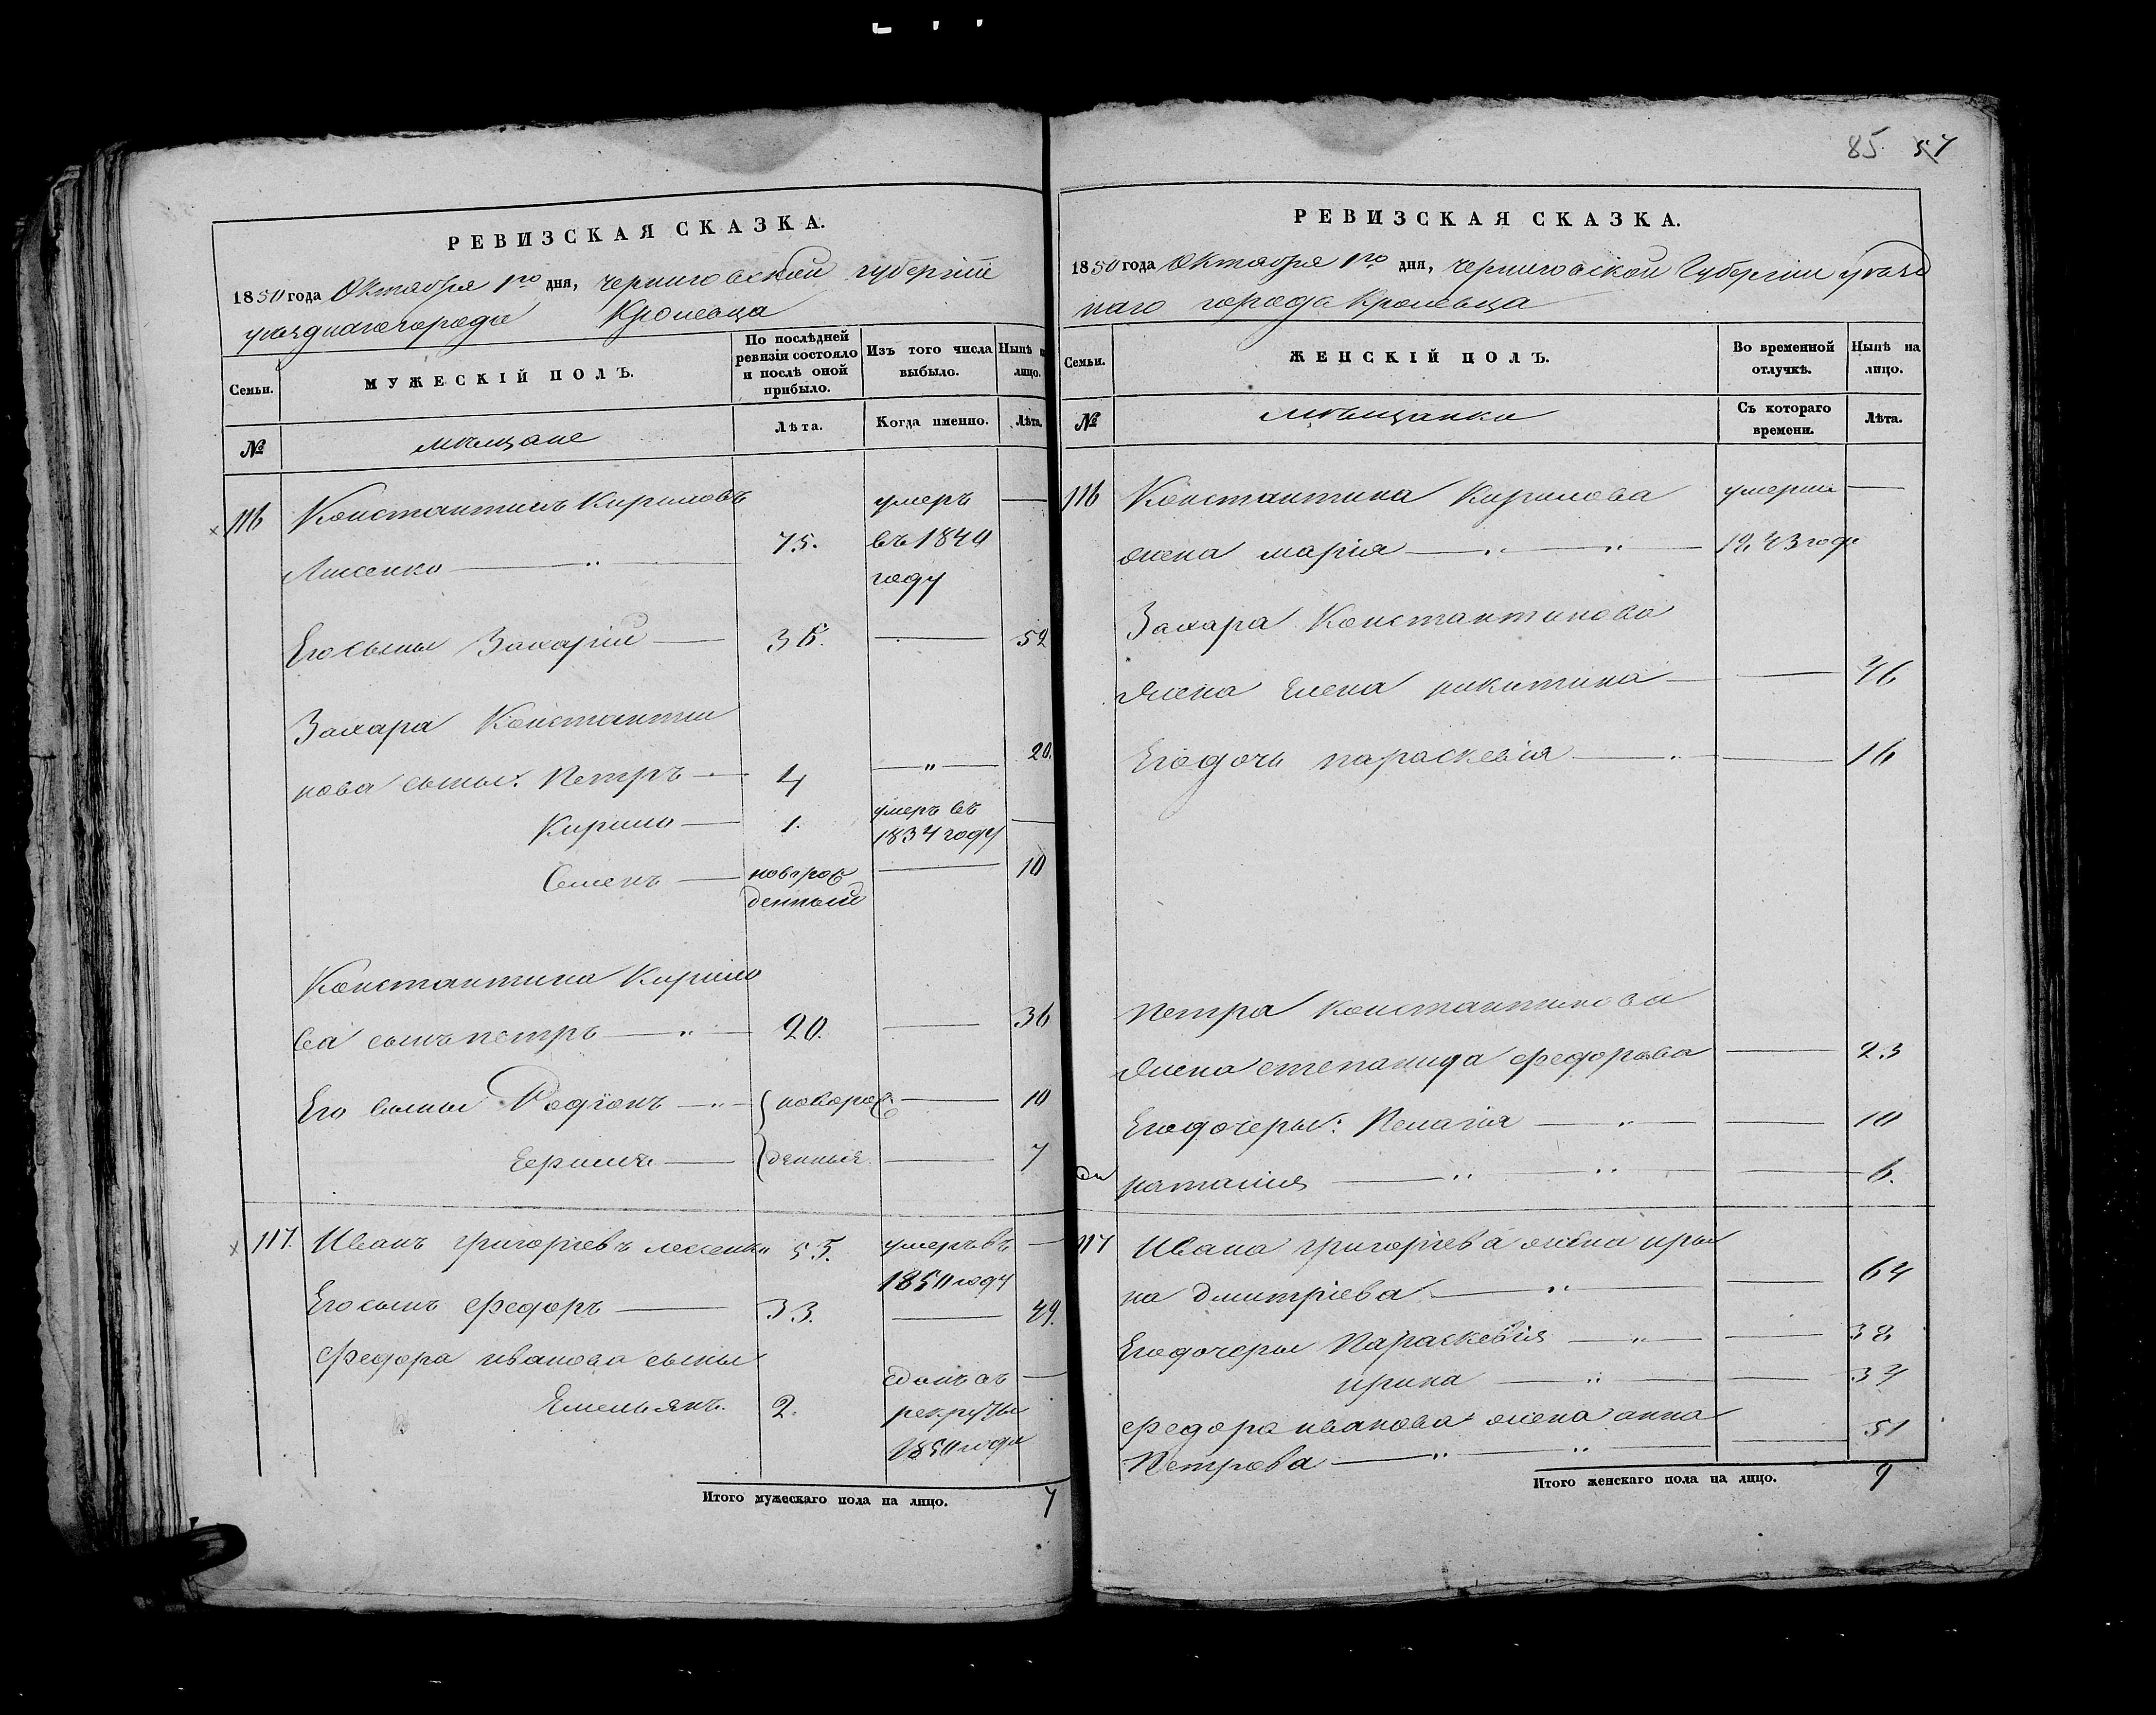 85 57
РЕВИЗСКАЯ СКАЗКА.
1850 года Октября 1го дня, черниговской губерніи
уѣзднаго города Кролевца
Семьи.
МУЖЕСКІЙ ПОЛЪ.
По послѣдней ревизіи состояло и послѣ оной прибыло.
Изъ того числа выбыло.
Нынѣ на лицо.
№
мѣщане
Лѣта.
Когда именно.
Лѣта.
116 Константинъ Кириловъ умеръ —
Лисенко — 75. въ 1840
году
Его сыны Захарій — 36. — 52
Захара Константи
нова сыны: Петръ — 4 — 20.
Кирило — 1. умеръ въ 1834 году —
Семенъ — новорож денный — 10
Константина Кирило
ва сынъ петръ — 20. — 36
Его сыны Родіонъ — новорож — 10
— денные — 7
117. Иванъ григоріевъ 55. умеръ въ —
1850 году
Его сынъ Федоръ — 33. — 49.
Федора иванова сыны
Емельянъ. 2. сданъ въ —
рекруты
1850 года
Итого мужескаго пола на лицо. 7
РЕВИЗСКАЯ СКАЗКА.
1850 года Октября 1го дня, черниговской Губерніи уѣзд
наго города Кролевца
Семьи.
ЖЕНСКІЙ ПОЛЪ.
Во временной отлучкѣ.
Нынѣ на лицо.
№
мѣщанки
Съ котораго времени.
Лѣта.
116 Константина Кирилова умерша —
жена марія — 1843 года
Захара Константинова
жена Елена никитина — 46
Его дочь параскевія — 16
Петра константинова
жена степанида федорова — 23
Его дочеры: Пелагія — 10
наталія — 6.
117 Ивана григоріева жена иры
на дмитріева — 64
Его дочеры Параскевія — 38
ирина — 34
Федора иванова жена анна 51
Петрова —
Итого женскаго пола на лицо. 9